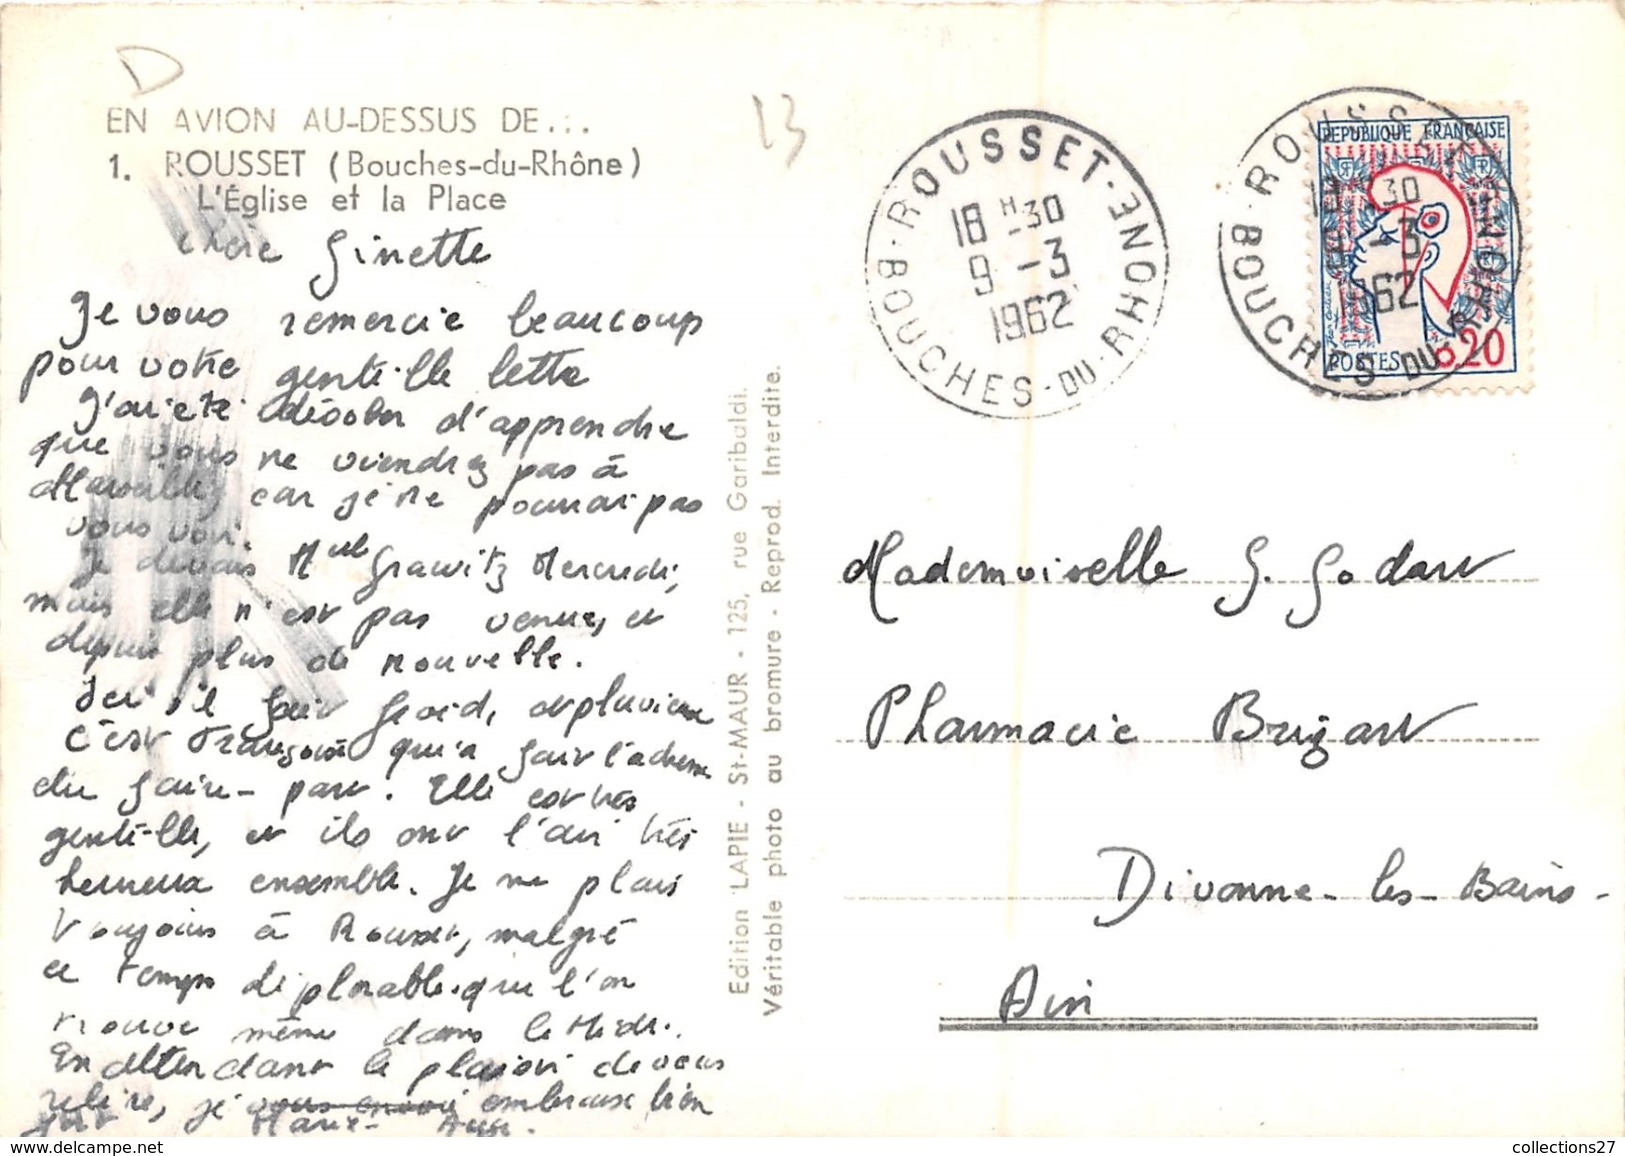 D
EN AVION AU-DESSUS DE...
1. ROUSSET (Bouches-du-Rhône)
L'Église et la Place
Chère Ginette
Je vous remercie beaucoup
pour votre gentille lettre
J'ai été désolée d'apprendre
que vous ne viendrez pas à
Marseille, car je ne pourrai pas
vous voir.
Je devais Mlle Grawitz Mercredi,
mais elle n'est pas venue, et
depuis plus de nouvelle.
Ici il fait froid, et pluvieux
c'est Françoise qui a fait l'adresse
du faire-part. Elle est très
gentille, et ils ont l'air très
heureux ensemble. Je me plais
toujours à Rousset, malgré
ce temps déplorable que l'on
trouve même dans le Midi.
En attendant le plaisir de vous
relire, je vous envoi embrasse bien
fort Marie-
Edition LAPIE - St-MAUR - 125, rue Garibaldi.
Véritable photo au bromure - Reprod. Interdite.
13
ROUSSET-ENE
18 H 30
9 -3
1962
BOUCHES-DU-RHONE
ROUSSET-ENE
18 H 30
9 -3
1962
BOUCHES-DU-RHONE
REPUBLIQUE FRANCAISE
POSTES 0,20
Mademoiselle G. Godart
Pharmacie Brizart
Divonne-les-Bains-
Ain
collections27